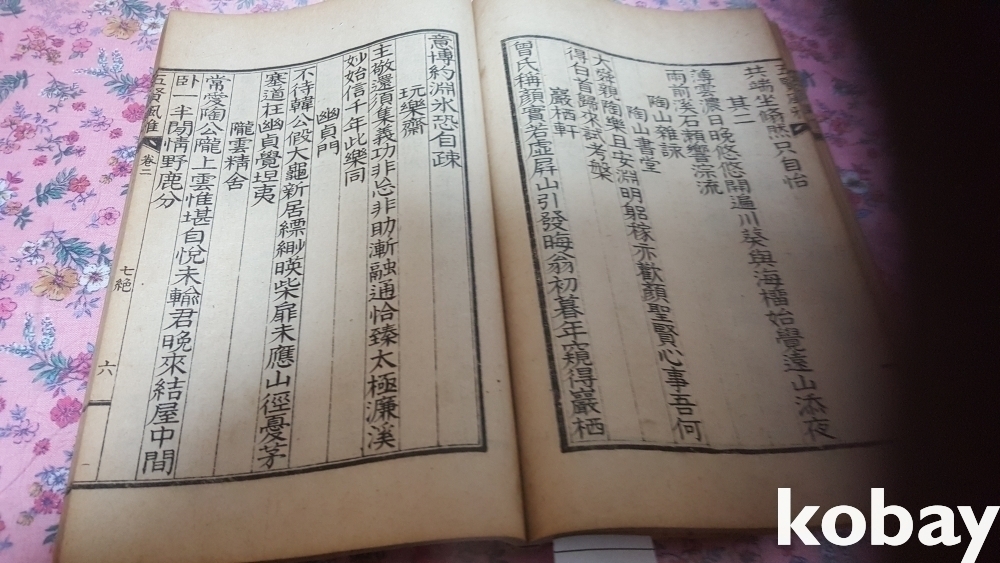 共端坐翛然只自怡
其二
薄雲濃日晚悠悠開遍川葵與海榴始覺遠山添夜
雨前溪石瀨響淙流
陶山雜詠
陶山書堂
大舜親陶樂且安淵明躬稼亦歡顔聖賢心事吾何
得白首歸來試考槃
巖栖軒
曾氏稱顔實若虛屏山引發晦翁初暮年窺得巖栖
意博約淵氷恐自疎
玩樂齋
主敬還須集義功非忘非助漸融通恰臻太極濂溪
妙始信千年此樂同
幽貞門
不待韓公假大龜新居縹緲暎柴扉未應山徑憂茅
塞道在幽貞覺坦夷
隴雲精舍
常愛陶公隴上雲惟堪自悅未輸君晚來結屋中間
臥一半閑情野鹿分
五賢風雅 卷二 七絶 六
kobay